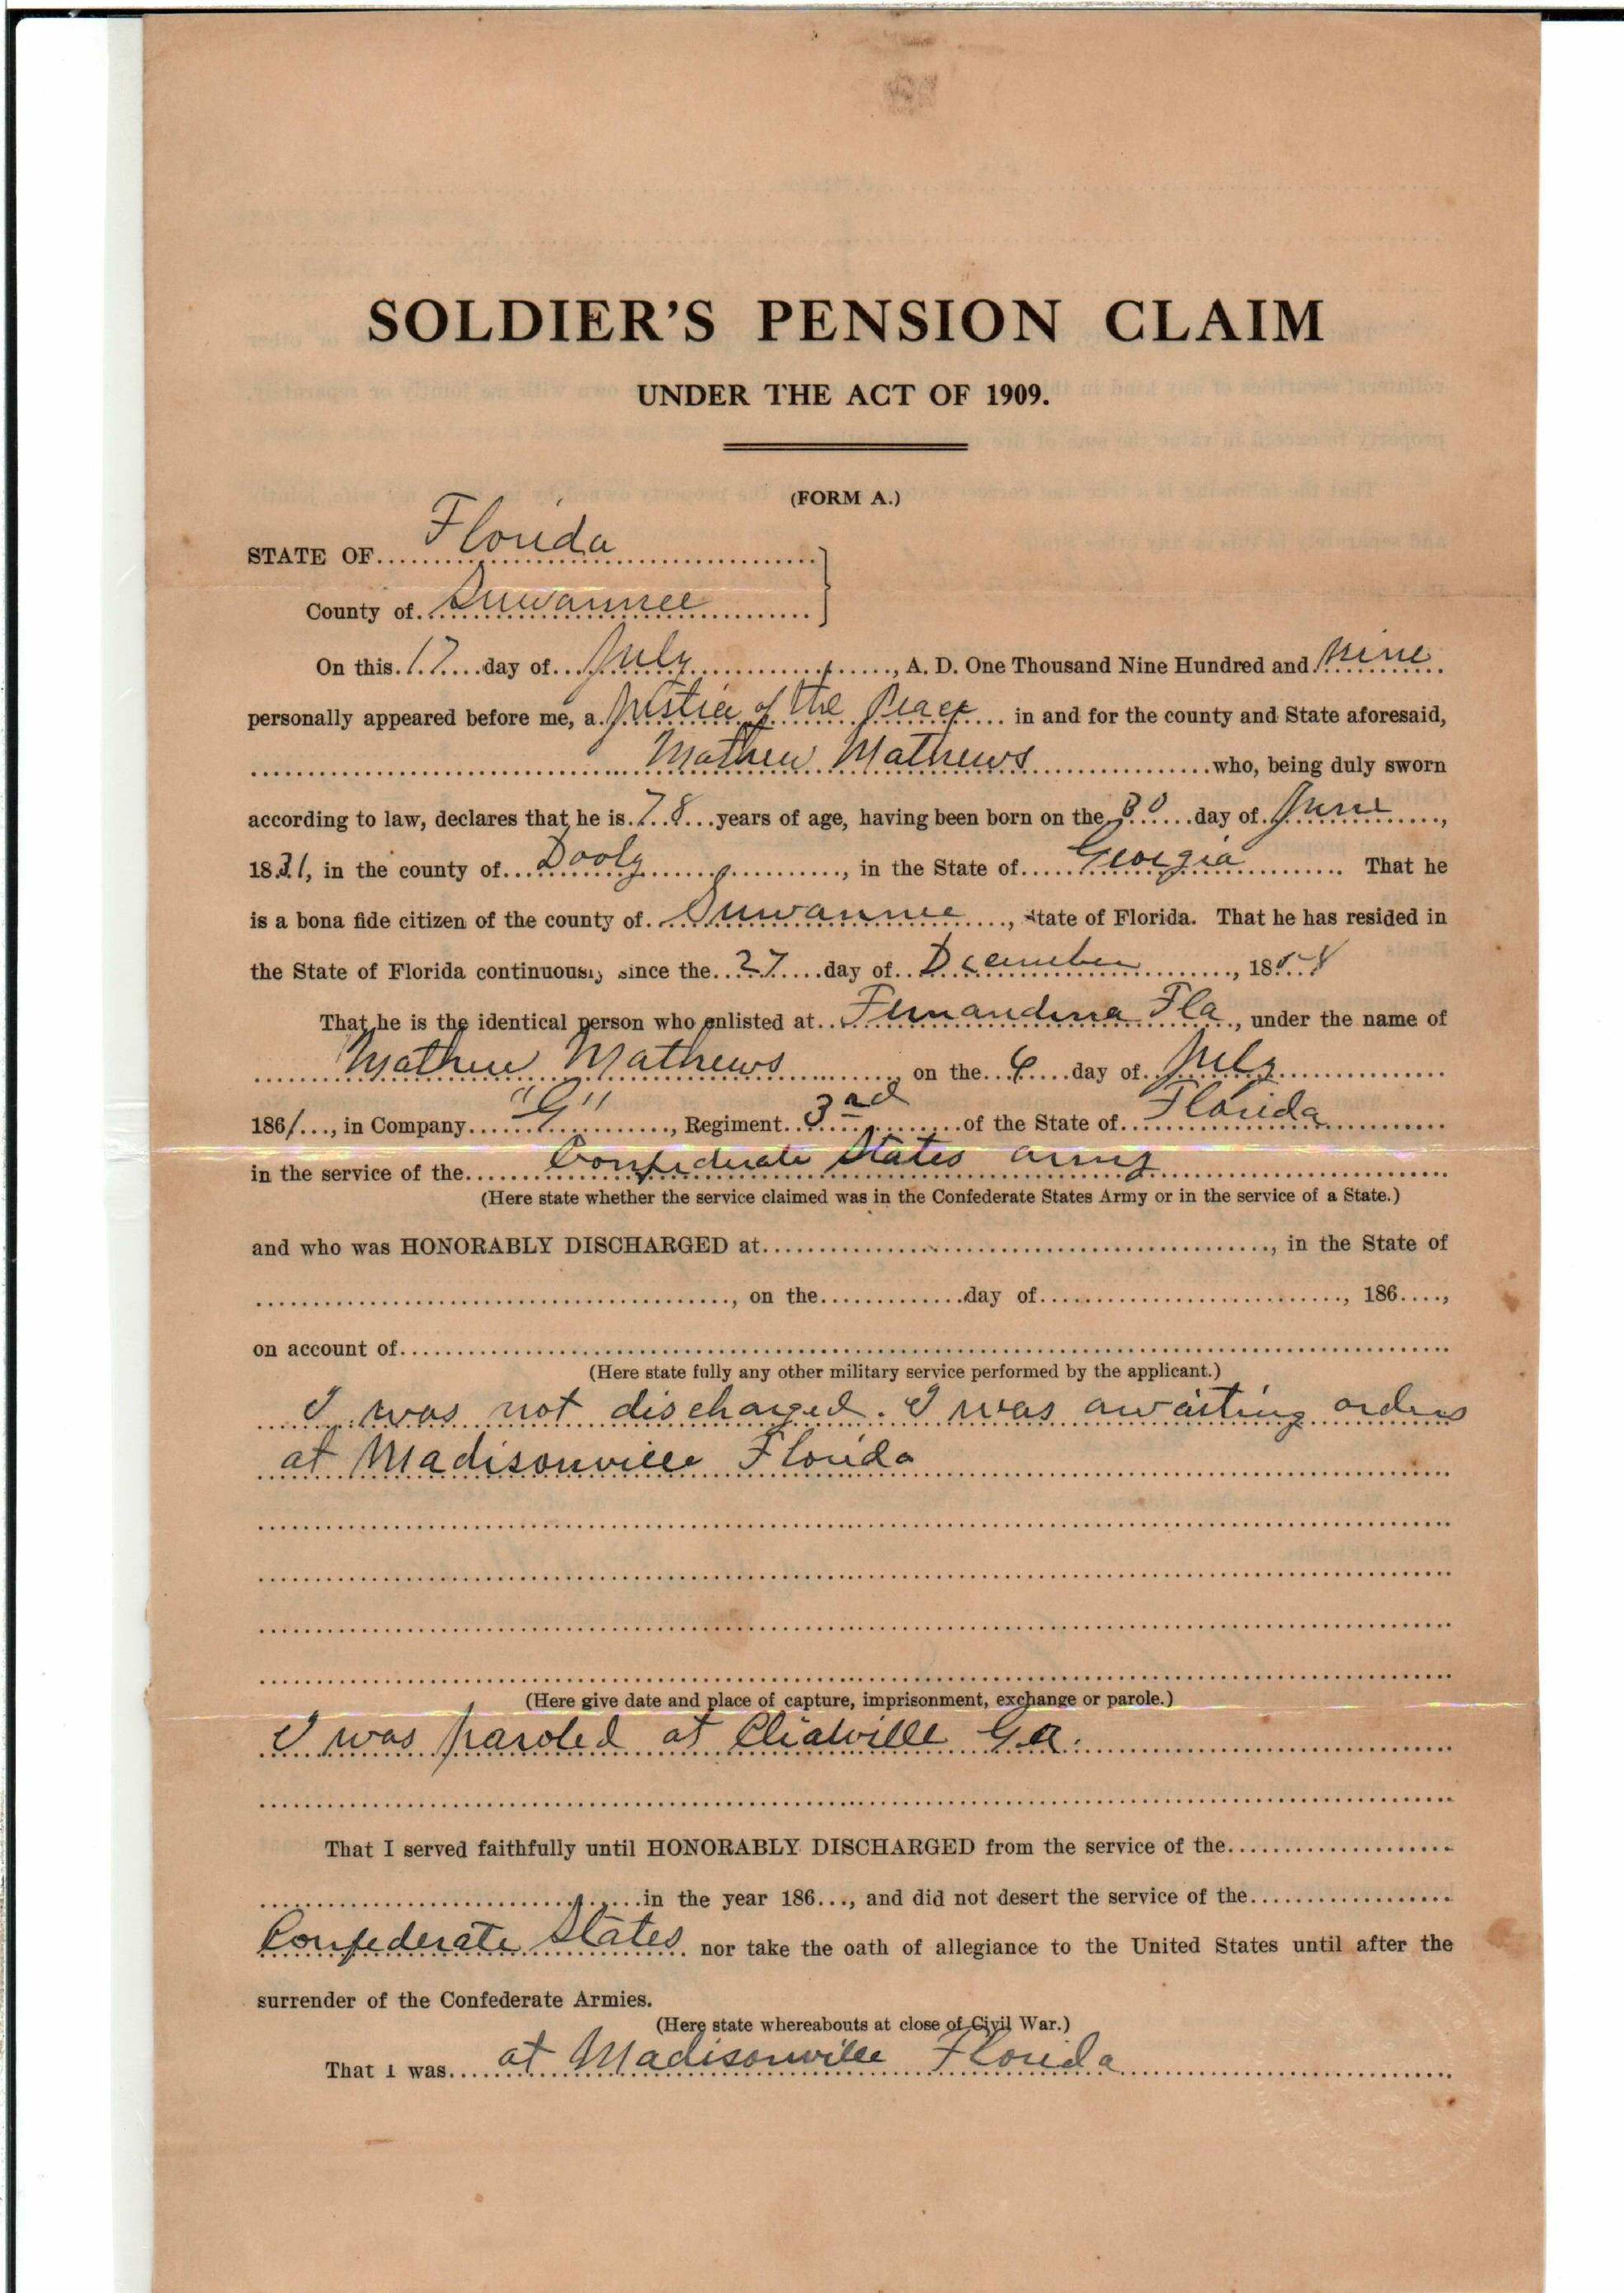 SOLDIER'S PENSION CLAIM
UNDER THE ACT OF 1909.
(FORM A.)
STATE OF Florida
County of Suwannee
On this 17 day of July, A. D. One Thousand Nine Hundred and Nine
personally appeared before me, a Justice of the Peace in and for the county and State aforesaid,
Mathew Mathews who, being duly sworn
according to law, declares that he is 78 years of age, having been born on the 30 day of June,
1831, in the county of Dooly, in the State of Georgia. That he
is a bona fide citizen of the county of Suwannee, State of Florida. That he has resided in
the State of Florida continuously since the 27 day of December, 18
That he is the identical person who enlisted at Fernandina Fla, under the name of
Mathew Mathews on the 6 day of July
1861, in Company "G", Regiment 3rd of the State of Florida
in the service of the Confederate States army
(Here state whether the service claimed was in the Confederate States Army or in the service of a State.)
and who was HONORABLY DISCHARGED at, in the State of
, on the day of, 186,
on account of
(Here state fully any other military service performed by the applicant.)
I was not discharged. I was awaiting orders
at Madisonville Florida
(Here give date and place of capture, imprisonment, exchange or parole.)
I was paroled at Ga.
That I served faithfully until HONORABLY DISCHARGED from the service of the
in the year 186, and did not desert the service of the
Confederate States nor take the oath of allegiance to the United States until after the
surrender of the Confederate Armies.
(Here state whereabouts at close of Civil War.)
That I was at Madisonville Florida